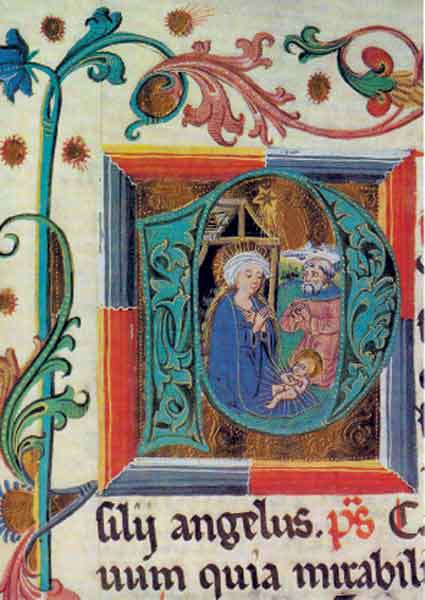 P
silij angelus. p̄s C
uum quia mirabili